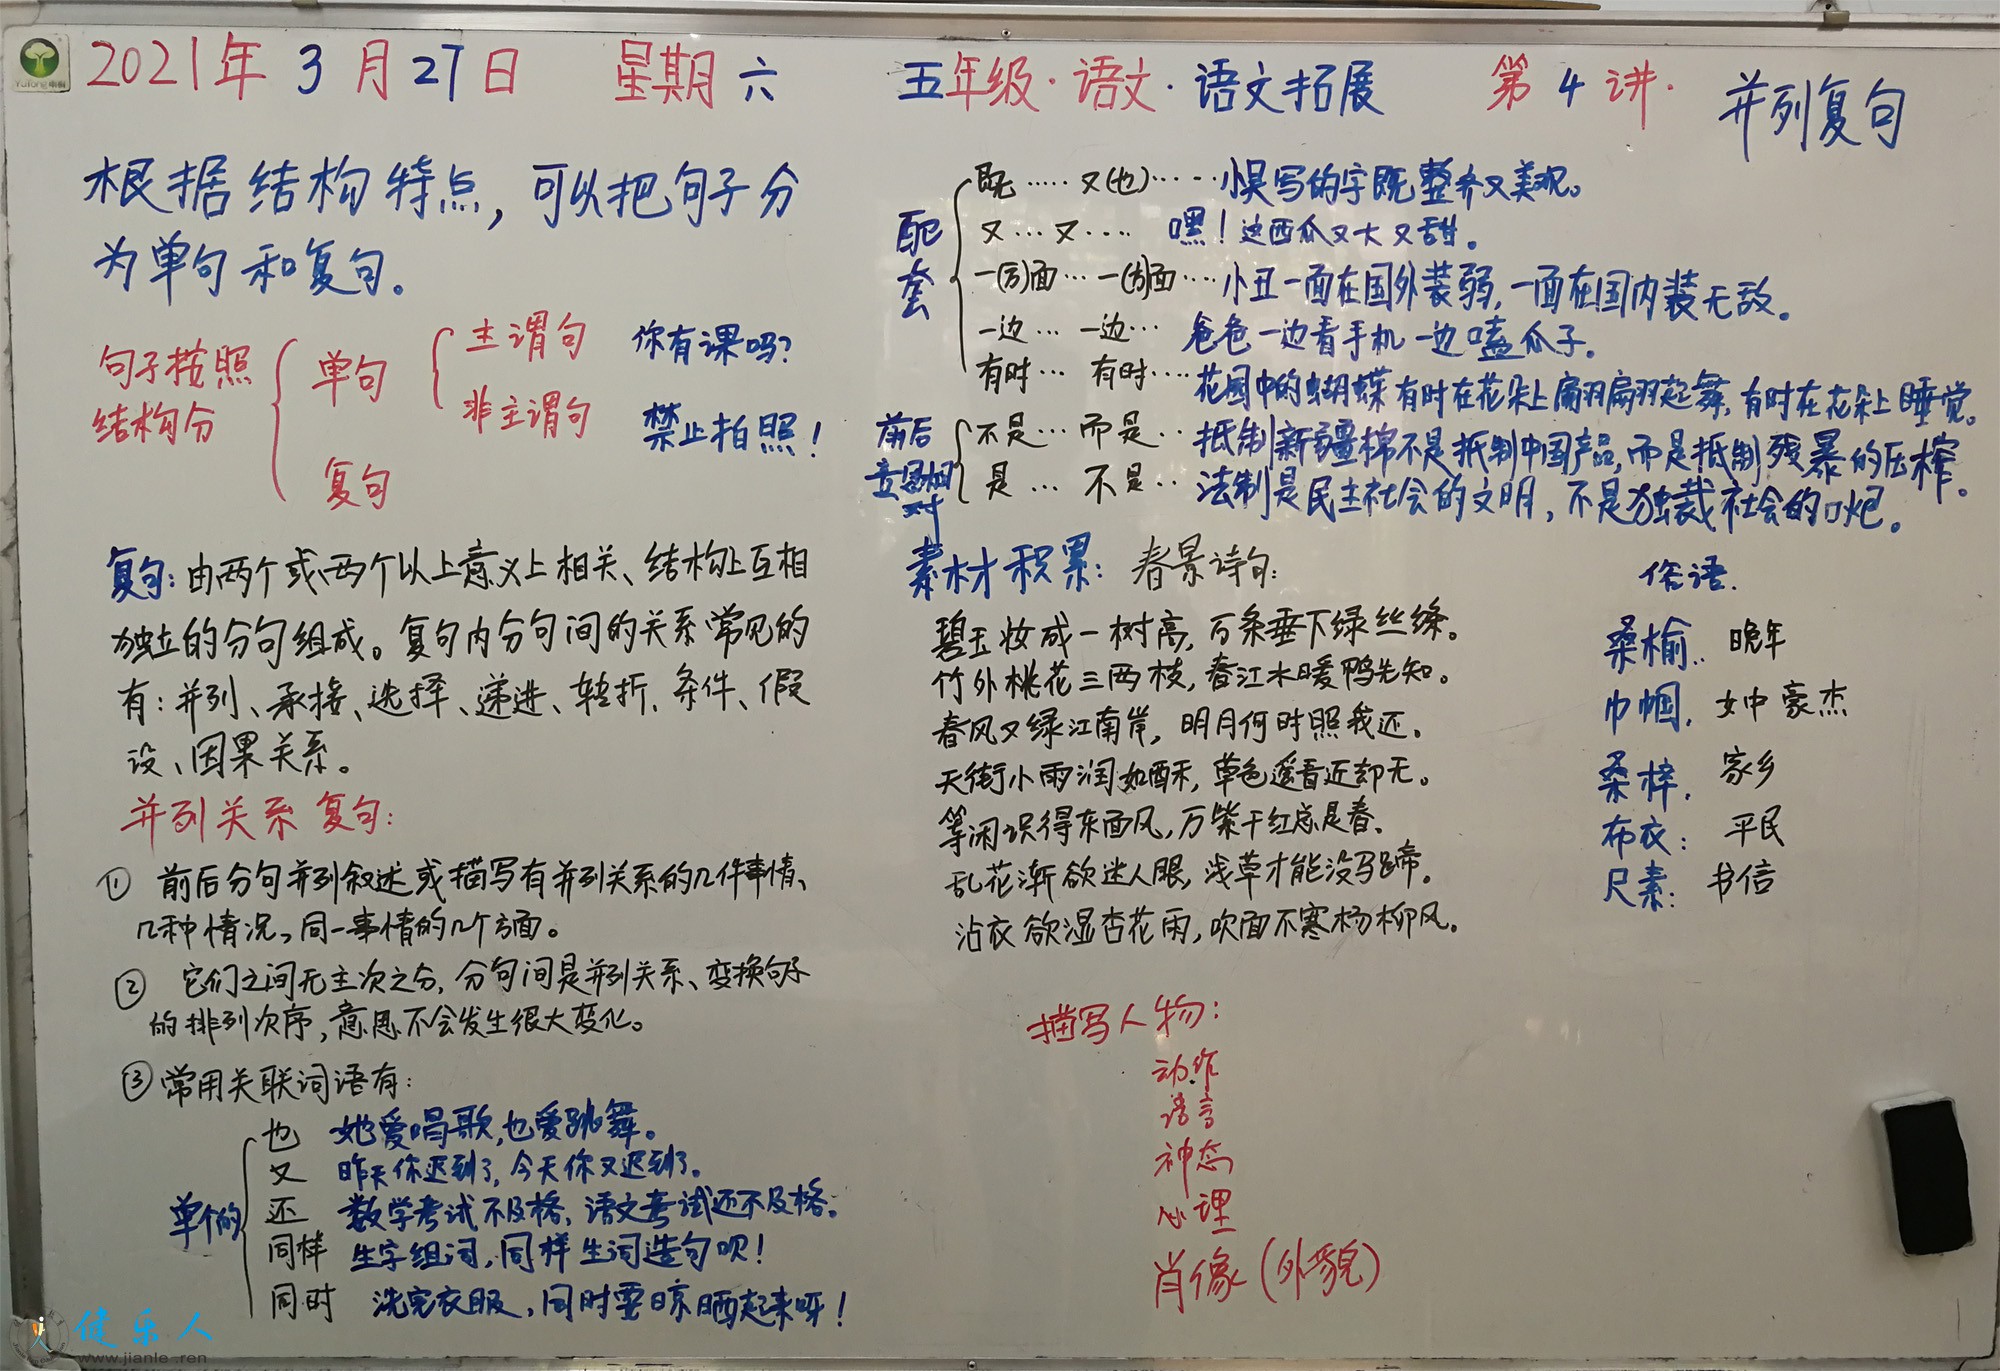 2021年 3月27日 星期六 五年级·语文·语文拓展 第4讲· 并列复句
根据结构特点，可以把句子分
为单句和复句。
句子按照
结构分
单句
主谓句 你有课吗？
非主谓句 禁止拍照！
复句
复句：由两个或两个以上意义上相关、结构上互相
独立的分句组成。复句内分句间的关系常见的
有：并列、承接、选择、递进、转折、条件、假
设、因果关系。
并列关系复句：
① 前后分句并列叙述或描写有并列关系的几件事情、
几种情况，同一事情的几个方面。
② 它们之间无主次之分，分句间是并列关系、变换句子
的排列次序，意思不会发生很大变化。
③常用关联词语有：
单个的
也 她爱唱歌，也爱跳舞。
又 昨天你迟到了，今天你又迟到了。
还 数学考试不及格，语文考试还不及格。
同样 生字组词，同样生词造句呗！
同时 洗完衣服，同时要晾晒起来呀！
配套
既……又(也)…… 小昊写的字既整齐又美观。
又…又…. 嘿！这西瓜又大又甜。
一(方)面…一(方)面… 小丑一面在国外装弱，一面在国内装无敌。
一边…一边… 爸爸一边看手机一边嗑瓜子。
有时…有时… 花园中的蝴蝶有时在花朵上翩翩起舞，有时在花朵上睡觉。
前后
意思相
对
不是…而是.. 抵制新疆棉不是抵制中国产品，而是抵制残暴的压榨。
是…不是.. 法制是民主社会的文明，不是独裁社会的口炮。
素材积累： 春景诗句：
碧玉妆成一树高，万条垂下绿丝绦。
竹外桃花三两枝，春江水暖鸭先知。
春风又绿江南岸，明月何时照我还。
天街小雨润如酥，草色遥看近却无。
等闲识得东面风，万紫千红总是春。
乱花渐欲迷人眼，浅草才能没马蹄。
沾衣欲湿杏花雨，吹面不寒杨柳风。
俗语.
桑榆.. 晚年
巾帼. 女中豪杰
桑梓. 家乡
布衣： 平民
尺素： 书信
描写人物：
动作
语言
神态
心理
肖像(外貌)
健乐人
www.jianle.ren